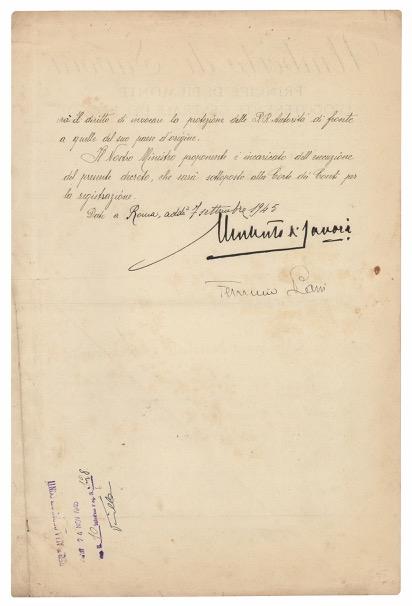 rà il diritto di invocare la protezione delle R.R. Autorità di fronte
a quelle del suo paese d'origine.
Il Nostro Ministro proponente è incaricato dell'esecuzione
del presente decreto, che sarà sottoposto alla Corte dei Conti per
la registrazione.
Dato a Roma, addì 7 settembre 1945
Umberto di Savoia
24 NOV 1945